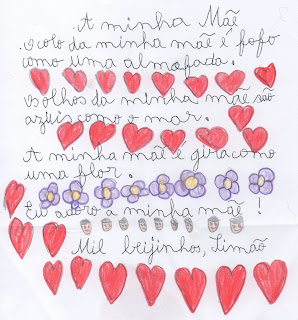 A minha Mãe
O colo da minha mãe é fofo
como uma almofada.
Os olhos da minha mãe são
azuis como o mar.
A minha mãe é gira como
uma flor.
Eu adoro a minha mãe!
Mil beijinhos, Simão